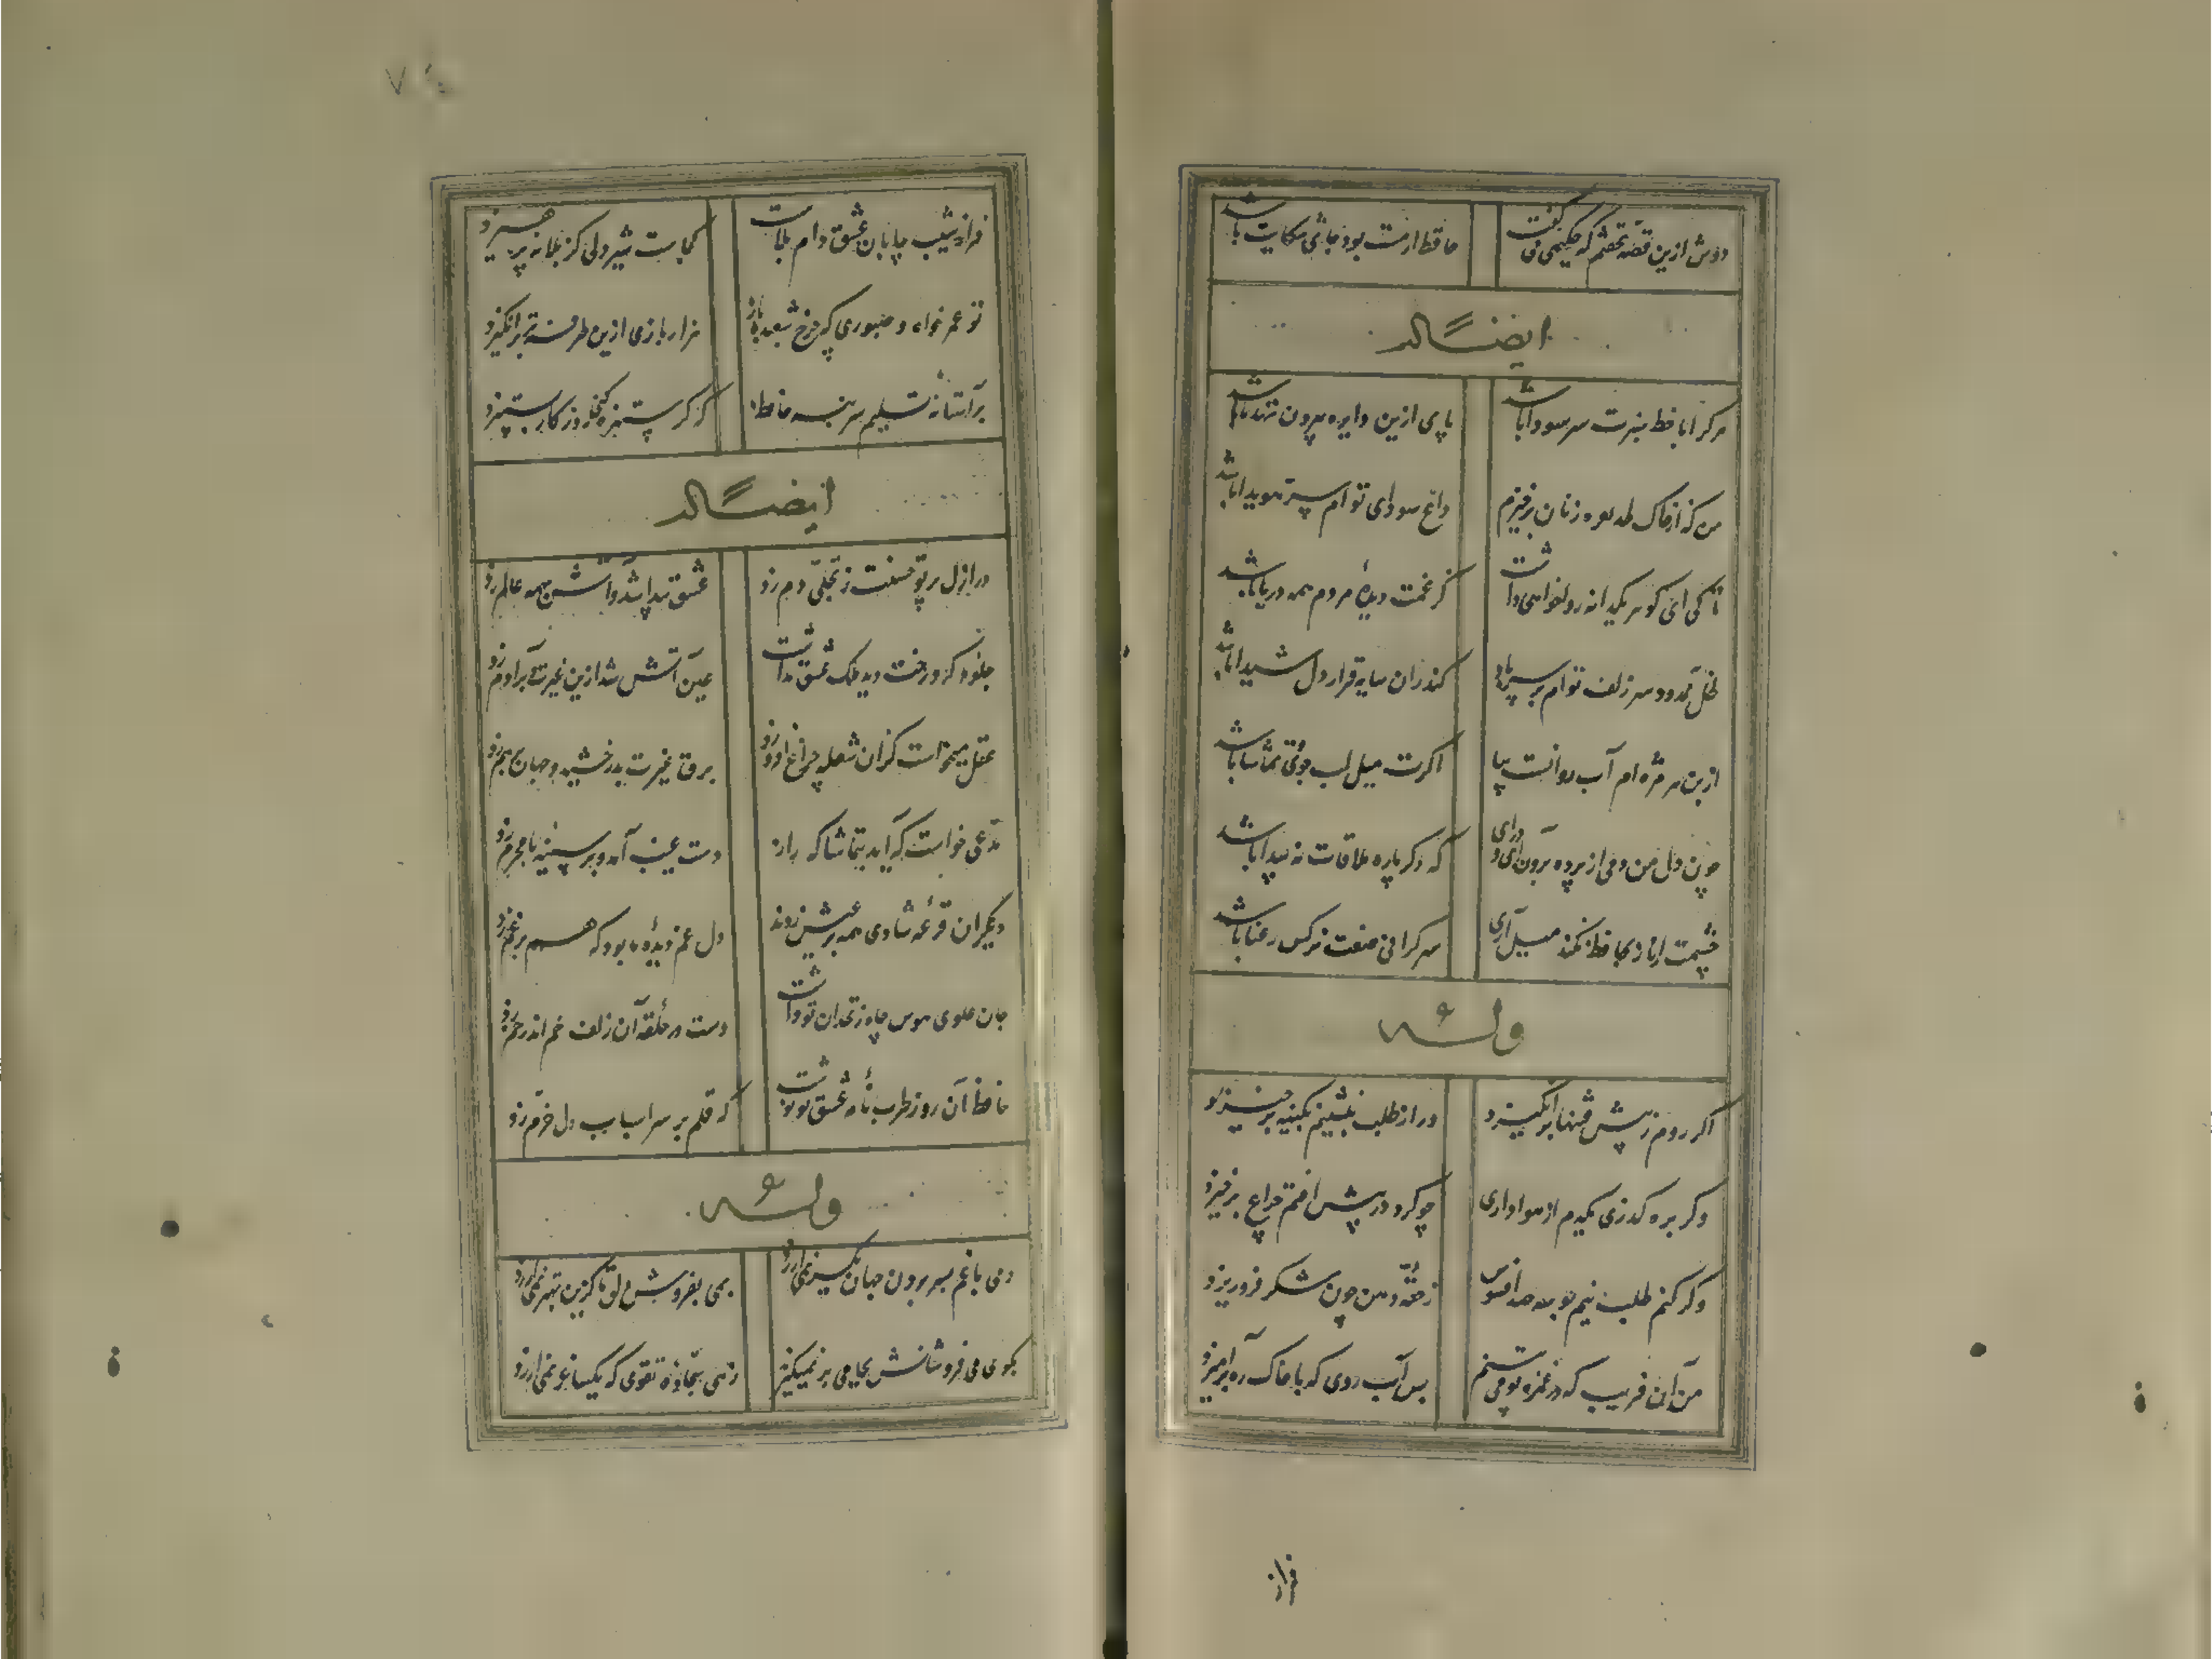 دوش ازین قصه نخفتم که حکیمی می گفت
حافظ ار مست بود جای شکایت باشد
ایضاً له
هر کرا با خط سبزت سر سودا باشد
پای ازین دایره بیرون ننهد تا باشد
من که از خاک لحد لعره زنان برخیزم
داغ سودای توام سر سویدا باشد
تا کی ای گوهر یکدانه روا خواهی داشت
کز غمت دیدهٔ مردم همه دریا باشد
ظل ممدود سر زلف توام بر سر باد
کندران سایه قرار دل شیدا باشد
از بن هر مژه ام آب روانست بیا
اگرت میل لب جوئی و تماشا باشد
چون دل من دمی از پرده برون آی و درای
که دگر باره ملاقات نه پیدا باشد
چشمت از ناز بحافظ نکند میل آری
سر گرانی صفت نرگس رعنا باشد
وله
اگر روم ز پیش فتنها برانگیزد
ور از طلب بنشینم بکینه برخیزد
وگر برهگذری یکدم از هواداری
چو گرد در پیش افتم چو باد بگریزد
وگر کنم طلب نیم بوسه صد افسوس
ز حقهٔ دهن چون شکر فرو ریزد
من آن فریب که در غمزه تو می بینم
بس آب روی که با خاک ره برآمیزد
فراز
فراز و شیب بیابان عشق دام بلاست
کجاست شیر دلی کز بلا نه پرهیزد
تو عمر خواه و صبوری که چرخ شعبده باز
هزار بازی ازین طرفه تر برانگیزد
بر آستانه تسلیم سر بنه حافظ
که گر ستیزه کنی روزگار بستیزد
ایضاً له
در ازل پرتو حسنت ز تجلی دم زد
عشق پیدا شد و آتش بهمه عالم زد
جلوهٔ کرد رخت دید ملک عشق نداشت
عین آتش شد ازین غیرت و بر آدم زد
عقل میخواست کزان شعله چراغ افروزد
برق غیرت بدرخشید و جهان برهم زد
مدعی خواست که آید بتماشاگه راز
دست غیب آمد و بر سینه نامحرم زد
دیگران قرعه شادی همه بر عیش زدند
دل غم دیدهٔ ما بود که هم بر غم زد
جان علوی هوس چاه زنخدان تو داشت
دست در حلقه آن زلف خم اندر خم زد
حافظ آن روز طرب نامه عشق تو نوشت
که قلم بر سر اسباب دل خرم زد
وله
دمی با غم بسر بردن جهان یکسر نمی ارزد
بمی بفروش دلق ما کزین بهتر نمی ارزد
بکوی می فروشانش بجامی بر نمیگیرند
زهی سجادهٔ تقوی که یکساغر نمی ارزد